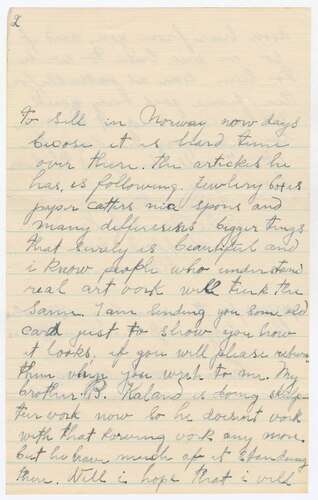 2
to sell in Norway now days
becose it is hard time
over there. the articles he
has, is following. Jewlery boxes
paper cutters nice spons and
many differeses bigger tings
that surely is beautiful and
i know people who understand
real art work will tink the
same. I am sending you some old
card just to show you how
it looks, if you will please return
them when you wrigh to me. My
brother B. Kaland is doing skulp-
teur work now so he doesent work
with that karving work any more
but he have much of it standing
there. Well i hope that i will